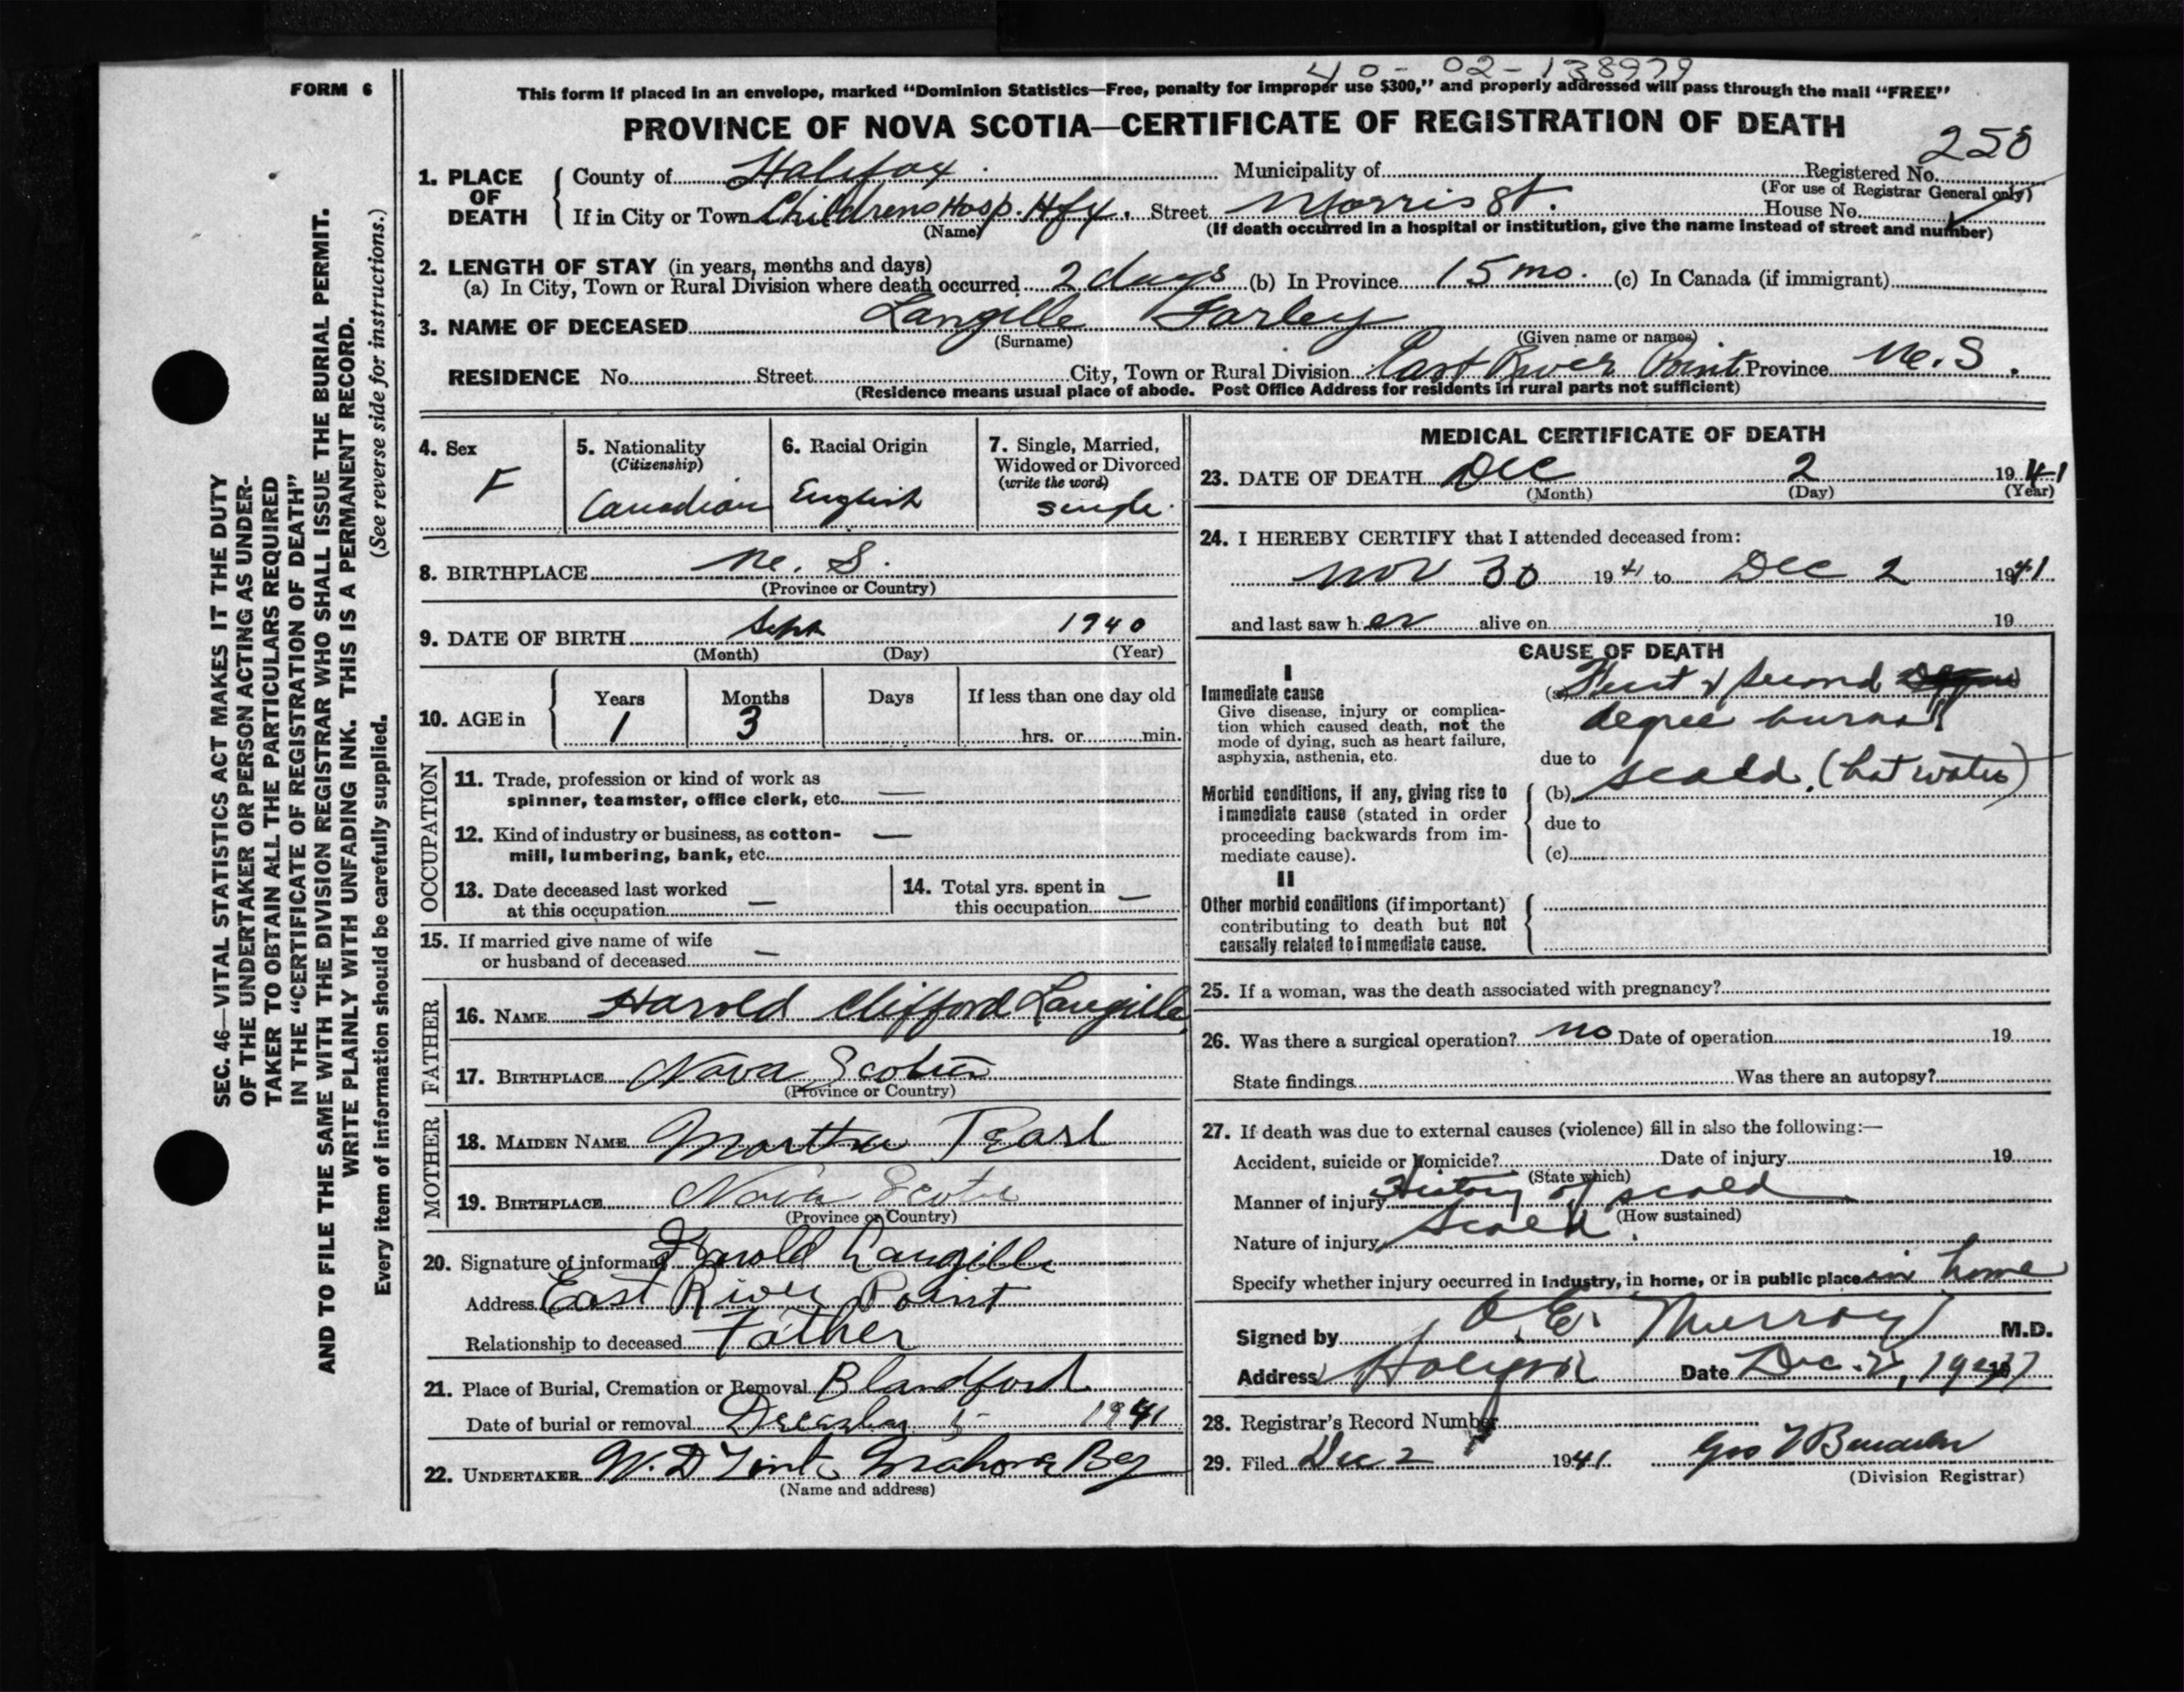 40-02-138979
FORM 6
This form if placed in an envelope, marked “Dominion Statistics—Free, penalty for improper use $300,” and properly addressed will pass through the mail “FREE”
PROVINCE OF NOVA SCOTIA—CERTIFICATE OF REGISTRATION OF DEATH
1. PLACE OF DEATH County of Halifax Municipality of Registered No. 258
(For use of Registrar General only)
If in City or Town Childrens Hosp. Hfx. Street Morris St. House No.
(Name) (If death occurred in a hospital or institution, give the name instead of street and number)
2. LENGTH OF STAY (in years, months and days)
(a) In City, Town or Rural Division where death occurred 2 days (b) In Province 15 mo. (c) In Canada (if immigrant)
3. NAME OF DECEASED Langille Farley
(Surname) (Given name or names)
RESIDENCE No. Street City, Town or Rural Division East River Point Province N.S.
(Residence means usual place of abode. Post Office Address for residents in rural parts not sufficient)
4. Sex F
5. Nationality (Citizenship) Canadian
6. Racial Origin English
7. Single, Married, Widowed or Divorced (write the word) single
8. BIRTHPLACE N. S.
(Province or Country)
9. DATE OF BIRTH Sept 1940
(Month) (Day) (Year)
10. AGE in Years 1 Months 3 Days If less than one day old hrs. or min.
OCCUPATION
11. Trade, profession or kind of work as
spinner, teamster, office clerk, etc. —
12. Kind of industry or business, as cotton-
mill, lumbering, bank, etc. —
13. Date deceased last worked
at this occupation —
14. Total yrs. spent in
this occupation —
15. If married give name of wife
or husband of deceased —
FATHER
16. NAME Harold Clifford Langille
17. BIRTHPLACE Nova Scotia
(Province or Country)
MOTHER
18. MAIDEN NAME Martha Pearl
19. BIRTHPLACE Nova Scotia
(Province or Country)
20. Signature of informant Harold Langille
Address East River Point
Relationship to deceased Father
21. Place of Burial, Cremation or Removal Blandford
Date of burial or removal December 1941
22. UNDERTAKER W. D Zink Mahone Bay
(Name and address)
MEDICAL CERTIFICATE OF DEATH
23. DATE OF DEATH Dec 2 1941
(Month) (Day) (Year)
24. I HEREBY CERTIFY that I attended deceased from:
Nov 30 1941 to Dec 2 1941
and last saw her alive on 19
CAUSE OF DEATH
I
Immediate cause
Give disease, injury or complica-
tion which caused death, not the
mode of dying, such as heart failure,
asphyxia, asthenia, etc.
(a) First & Second
degree burns
due to
Morbid conditions, if any, giving rise to
immediate cause (stated in order
proceeding backwards from im-
mediate cause).
(b) scald. (hot water)
due to
(c)
II
Other morbid conditions (if important)
contributing to death but not
causally related to immediate cause.
25. If a woman, was the death associated with pregnancy?
26. Was there a surgical operation? no Date of operation 19
State findings Was there an autopsy?
27. If death was due to external causes (violence) fill in also the following:—
Accident, suicide or homicide? Date of injury 19
(State which)
Manner of injury History of scald
(How sustained)
Nature of injury Scald.
Specify whether injury occurred in industry, in home, or in public place in home
Signed by Murray M.D.
Address Date Dec. 2, 19
28. Registrar's Record Number
29. Filed Dec 2 1941. Geo
(Division Registrar)
SEC. 46—VITAL STATISTICS ACT MAKES IT THE DUTY
OF THE UNDERTAKER OR PERSON ACTING AS UNDER-
TAKER TO OBTAIN ALL THE PARTICULARS REQUIRED
IN THE “CERTIFICATE OF REGISTRATION OF DEATH”
AND TO FILE THE SAME WITH THE DIVISION REGISTRAR WHO SHALL ISSUE THE BURIAL PERMIT.
WRITE PLAINLY WITH UNFADING INK. THIS IS A PERMANENT RECORD.
Every item of information should be carefully supplied. (See reverse side for instructions.)